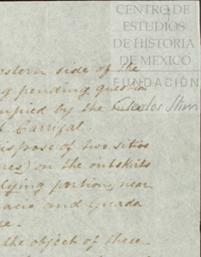 CENTRO DE
ESTUDIOS
DE HISTORIA
DE MEXICO
FUNDACIÓN
Carlos Slim
western side of the
g pending question
upied by the
Carrizal
ispose of two sitios
res) on the outskirts
lying portion, near
acio and Guada
the object of these